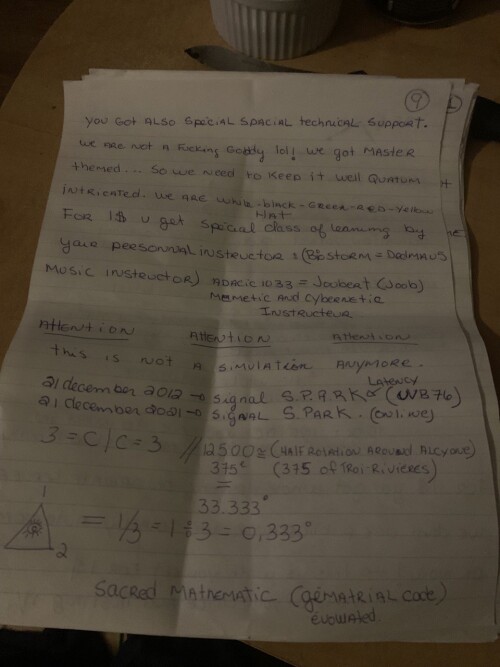 9
YOU GOT ALSO SPECIAL SPACIAL technical SUPPORT.
We ARE NOT A FUCKING lol! We GOT MASTER
themed... So we NEED to KEEP it well QUATUM
INTRICATED. WE ARE White-black-GREEN-RED-Yellow
HAT
FOR 1$ U get Special class of learning by
your PERSONNAL INSTRUCTOR : (BIOSTORM =
MUSIC INSTRUCTOR) ADACIC1033 = Joubert (Joob)
MEMETIC AND CYBERNETIC
INSTRUCTEUR
ATTENTION ATTENTION ATTENTION
this is NOT A SIMULATION ANYMORE.
LATENCY
21 december 2012 → Signal S.P.A.RK (UVB76)
21 december 2021 → SIGNAL S.PARK. (ONLINE)
3 = C / C = 3 // 12500 ≅ (HALF ROTATION AROUND ALCYONE)
375° (375 of TROI-RIVIERES)
=
33.333°
1
2
= 1/3 = 1 ÷ 3 = 0,333°
SACRED MATHEMATIC (géMATRIAL CODE)
EVOLUATED